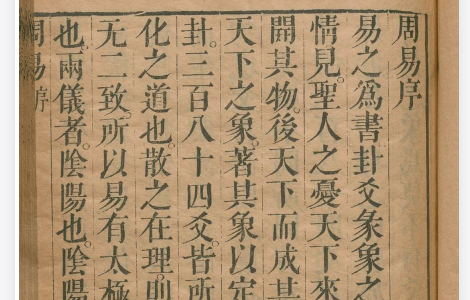 周易序
易之爲書卦爻彖象之
情見。聖人之憂天下來
開其物。後天下而成其
天下之象。著其象以定
卦。三百八十四爻。皆所
化之道也。散之在理則
无二致。所以易有太極
也。兩儀者。陰陽也。陰陽
周易序